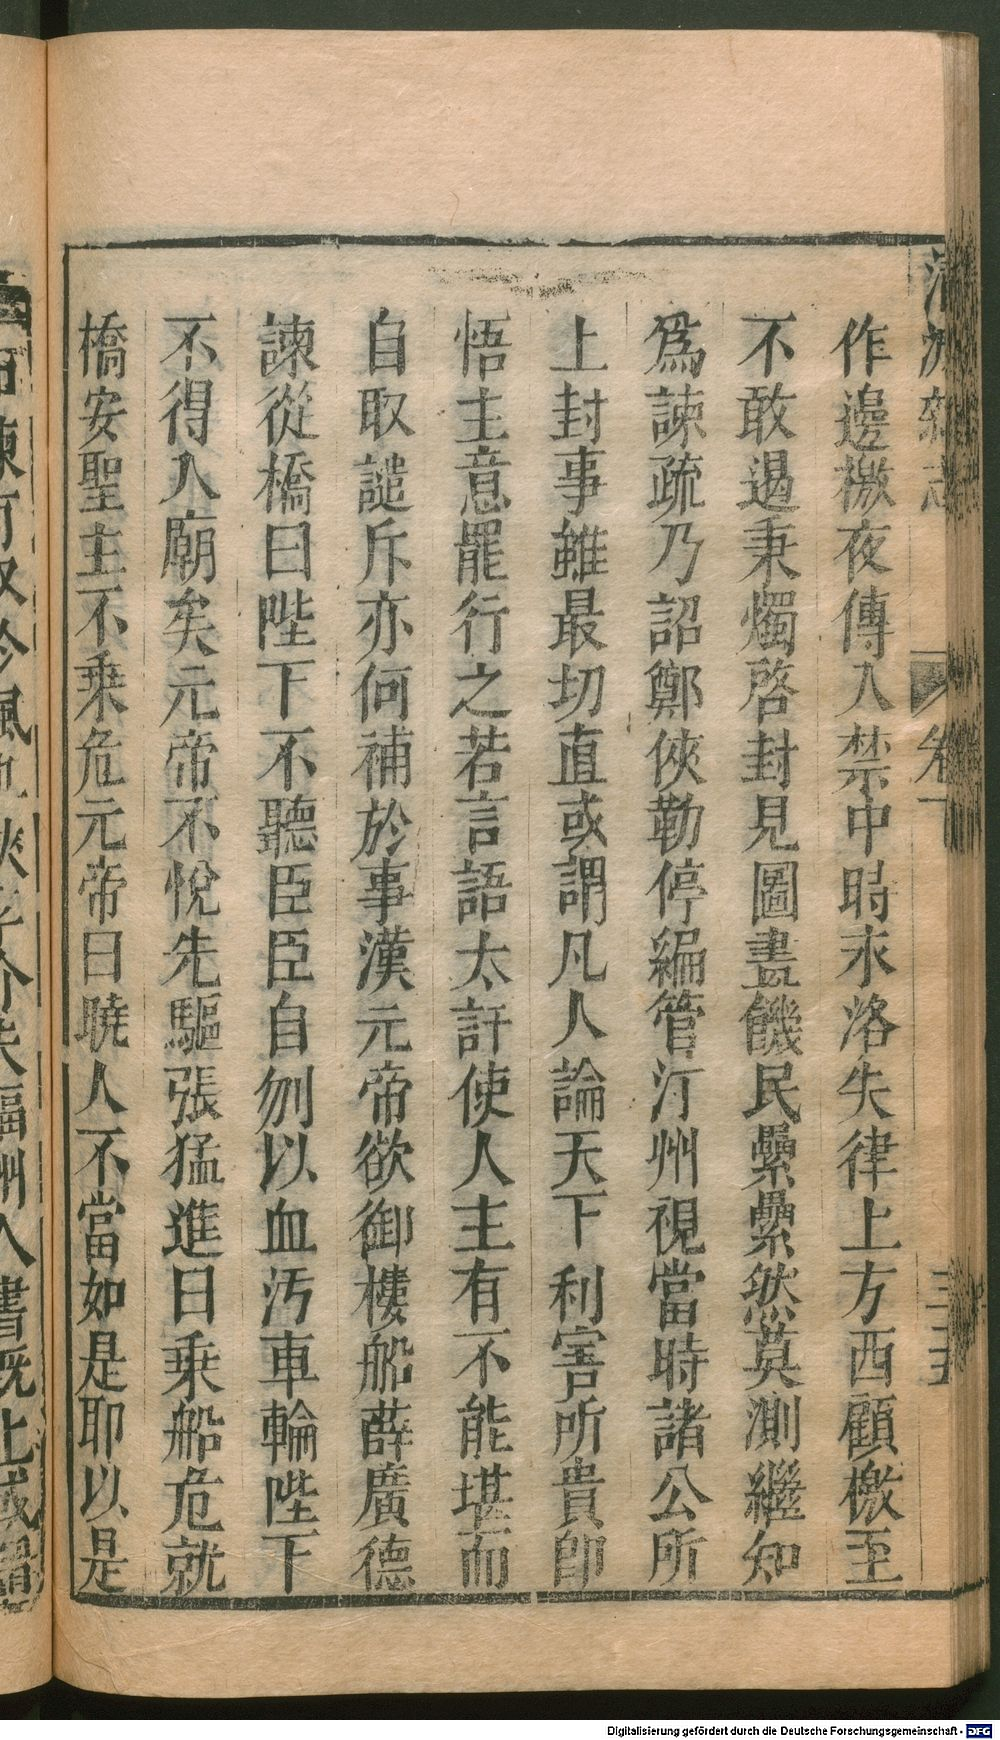 作邊檄夜傳入禁中時永洛失律上方西顧檄至
不敢遏秉燭啓封見圖畫饑民纍纍然莫測繼知
爲諫疏乃詔鄭俠勒停編管汀州視當時諸公所
上封事雖最切直或謂凡人論天下利害所貴即
悟主意罷行之若言語太訐使人主有不能堪而
自取譴斥亦何補於事漢元帝欲御樓船薛廣德
諫從橋曰陛下不聽臣臣自刎以血汚車輪陛下
不得入廟矣元帝不悅先驅張猛進曰乘船危就
橋安聖主不乘危元帝曰曉人不當如是耶以是
卷下
三五
Digitalisierung gefördert durch die Deutsche Forschungsgemeinschaft - DFG